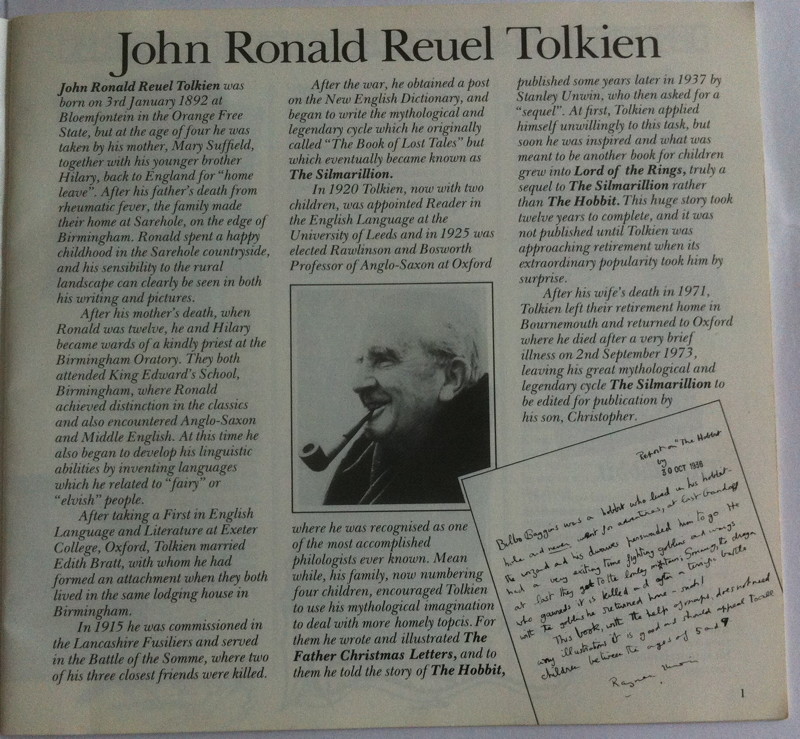 John Ronald Reuel Tolkien
John Ronald Reuel Tolkien was
born on 3rd January 1892 at
Bloemfontein in the Orange Free
State, but at the age of four he was
taken by his mother, Mary Suffield,
together with his younger brother
Hilary, back to England for "home
leave". After his father's death from
rheumatic fever, the family made
their home at Sarehole, on the edge of
Birmingham. Ronald spent a happy
childhood in the Sarehole countryside,
and his sensibility to the rural
landscape can clearly be seen in both
his writing and pictures.
After his mother's death, when
Ronald was twelve, he and Hilary
became wards of a kindly priest at the
Birmingham Oratory. They both
attended King Edward's School,
Birmingham, where Ronald
achieved distinction in the classics
and also encountered Anglo-Saxon
and Middle English. At this time he
also began to develop his linguistic
abilities by inventing languages
which he related to "fairy" or
"elvish" people.
After taking a First in English
Language and Literature at Exeter
College, Oxford, Tolkien married
Edith Bratt, with whom he had
formed an attachment when they both
lived in the same lodging house in
Birmingham.
In 1915 he was commissioned in
the Lancashire Fusiliers and served
in the Battle of the Somme, where two
of his three closest friends were killed.
After the war, he obtained a post
on the New English Dictionary, and
began to write the mythological and
legendary cycle which he originally
called "The Book of Lost Tales" but
which eventually became known as
The Silmarillion.
In 1920 Tolkien, now with two
children, was appointed Reader in
the English Language at the
University of Leeds and in 1925 was
elected Rawlinson and Bosworth
Professor of Anglo-Saxon at Oxford
where he was recognised as one
of the most accomplished
philologists ever known. Mean
while, his family, now numbering
four children, encouraged Tolkien
to use his mythological imagination
to deal with more homely topcis. For
them he wrote and illustrated The
Father Christmas Letters, and to
them he told the story of The Hobbit,
published some years later in 1937 by
Stanley Unwin, who then asked for a
"sequel". At first, Tolkien applied
himself unwillingly to this task, but
soon he was inspired and what was
meant to be another book for children
grew into Lord of the Rings, truly a
sequel to The Silmarillion rather
than The Hobbit. This huge story took
twelve years to complete, and it was
not published until Tolkien was
approaching retirement when its
extraordinary popularity took him by
surprise.
After his wife's death in 1971,
Tolkien left their retirement home in
Bournemouth and returned to Oxford
where he died after a very brief
illness on 2nd September 1973,
leaving his great mythological and
legendary cycle The Silmarillion to
be edited for publication by
his son, Christopher.
Report on "The Hobbit
by
30 OCT 1936
Bilbo Baggins was a hobbit who lived in his hobbit-
hole and never went for adventures, at last Gandalf
the wizard and his dwarves persuaded him to go. He
had a very exiting time fighting goblins and wargs
at last they got to the lonley mountain; Smaug, the dragon
who gawreds it is killed and after a terrific battle
with the goblins he returned home - rich!
This book, with the help of maps, does not need
any illustrations it is good and should appeal to all
children between the ages of 5 and 9
Rayner Unwin
1